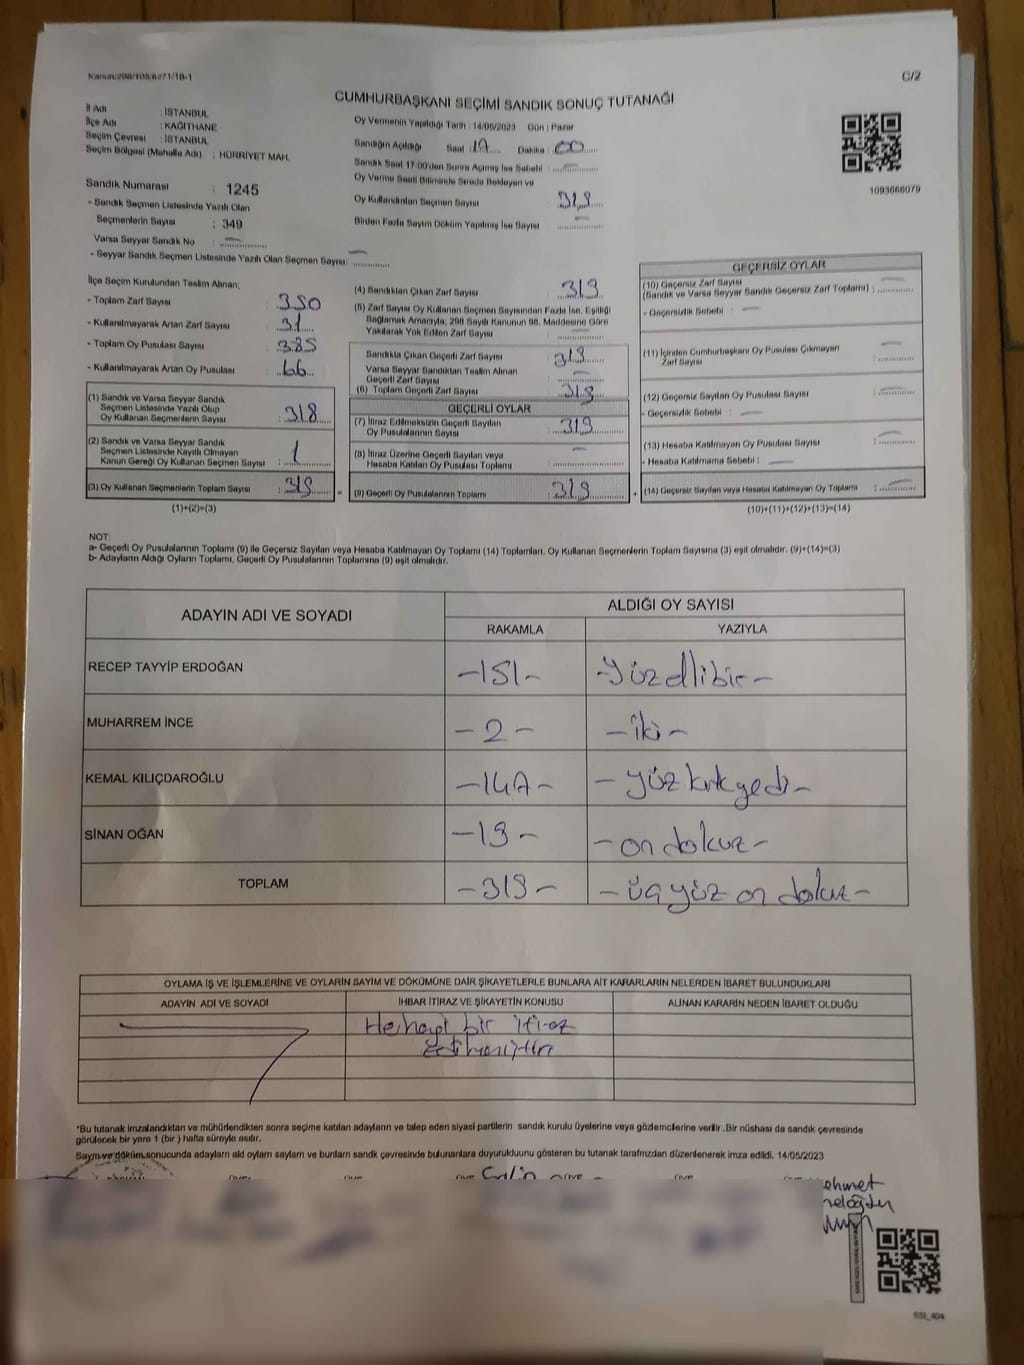 Kanun:298/108,6271/18-1
C/2
CUMHURBAŞKANI SEÇİMİ SANDIK SONUÇ TUTANAĞI
İl Adı : İSTANBUL
İlçe Adı : KAĞITHANE
Seçim Çevresi : İSTANBUL
Seçim Bölgesi (Mahalle Adı) : HÜRRİYET MAH.
Sandık Numarası : 1245
- Sandık Seçmen Listesinde Yazılı Olan
Seçmenlerin Sayısı : 349
Varsa Seyyar Sandık No :
- Seyyar Sandık Seçmen Listesinde Yazılı Olan Seçmen Sayısı:
Oy Vermenin Yapıldığı Tarih : 14/05/2023 Gün : Pazar
Sandığın Açıldığı Saat : 17 Dakika : 00
Sandık Saat 17:00'den Sonra Açılmış İse Sebebi :
Oy Verme Saati Bitiminde Sırada Bekleyen ve
Oy Kullandırılan Seçmen Sayısı : 319
Birden Fazla Sayım Döküm Yapılmış İse Sayısı :
1093668079
İlçe Seçim Kurulundan Teslim Alınan;
- Toplam Zarf Sayısı : 350
- Kullanılmayarak Artan Zarf Sayısı : 31
- Toplam Oy Pusulası Sayısı : 385
- Kullanılmayarak Artan Oy Pusulası : 66
(1) Sandık ve Varsa Seyyar Sandık
Seçmen Listesinde Yazılı Olup
Oy Kullanan Seçmenlerin Sayısı : 318
(2) Sandık ve Varsa Seyyar Sandık
Seçmen Listesinde Kayıtlı Olmayan
Kanun Gereği Oy Kullanan Seçmen Sayısı : 1
(3) Oy Kullanan Seçmenlerin Toplam Sayısı : 319
(1)+(2)=(3)
(4) Sandıktan Çıkan Zarf Sayısı : 319
(5) Zarf Sayısı Oy Kullanan Seçmen Sayısından Fazla İse, Eşitliği
Sağlamak Amacıyla; 298 Sayılı Kanunun 98. Maddesine Göre
Yakılarak Yok Edilen Zarf Sayısı :
Sandıkta Çıkan Geçerli Zarf Sayısı : 319
Varsa Seyyar Sandıktan Teslim Alınan
Geçerli Zarf Sayısı :
(6) Toplam Geçerli Zarf Sayısı : 319
GEÇERLİ OYLAR
(7) İtiraz Edilmeksizin Geçerli Sayılan
Oy Pusulalarının Sayısı : 319
(8) İtiraz Üzerine Geçerli Sayılan veya
Hesaba Katılan Oy Pusulası Toplamı :
= (9) Geçerli Oy Pusulalarının Toplamı : 319 +
GEÇERSİZ OYLAR
(10) Geçersiz Zarf Sayısı
(Sandık ve Varsa Seyyar Sandık Geçersiz Zarf Toplamı) :
- Geçersizlik Sebebi :
(11) İçinden Cumhurbaşkanı Oy Pusulası Çıkmayan
Zarf Sayısı :
(12) Geçersiz Sayılan Oy Pusulası Sayısı :
- Geçersizlik Sebebi :
(13) Hesaba Katılmayan Oy Pusulası Sayısı :
- Hesaba Katılmama Sebebi :
(14) Geçersiz Sayılan veya Hesaba Katılmayan Oy Toplamı :
(10)+(11)+(12)+(13)=(14)
NOT:
a- Geçerli Oy Pusulalarının Toplamı (9) ile Geçersiz Sayılan veya Hesaba Katılmayan Oy Toplamı (14) Toplamları, Oy Kullanan Seçmenlerin Toplam Sayısına (3) eşit olmalıdır. (9)+(14)=(3)
b- Adayların Aldığı Oyların Toplamı, Geçerli Oy Pusulalarının Toplamına (9) eşit olmalıdır.
ADAYIN ADI VE SOYADI
ALDIĞI OY SAYISI
RAKAMLA YAZIYLA
RECEP TAYYİP ERDOĞAN -151- -yüzellibir-
MUHARREM İNCE -2- -iki-
KEMAL KILIÇDAROĞLU -147- -yüzkırkyedi-
SİNAN OĞAN -19- -on dokuz-
TOPLAM -319- -üçyüz on dokuz-
OYLAMA İŞ VE İŞLEMLERİNE VE OYLARIN SAYIM VE DÖKÜMÜNE DAİR ŞİKAYETLERLE BUNLARA AİT KARARLARIN NELERDEN İBARET BULUNDUKLARI
ADAYIN ADI VE SOYADI İHBAR İTİRAZ VE ŞİKAYETİN KONUSU ALINAN KARARIN NEDEN İBARET OLDUĞU
Herhangi bir itiraz
*Bu tutanak imzalandıktan ve mühürlendikten sonra seçime katılan adayların ve talep eden siyasi partilerin sandık kurulu üyelerine veya gözlemcilerine verilir .Bir nüshası da sandık çevresinde
görülecek bir yere 1 (bir ) hafta süreyle asılır.
Sayım ve döküm sonucunda adayların aldığı oyların sayıları ve bunların sandık çevresinde bulunanlara duyurulduğunu gösteren bu tutanak tarafımızdan düzenlenerek imza edildi. 14/05/2023